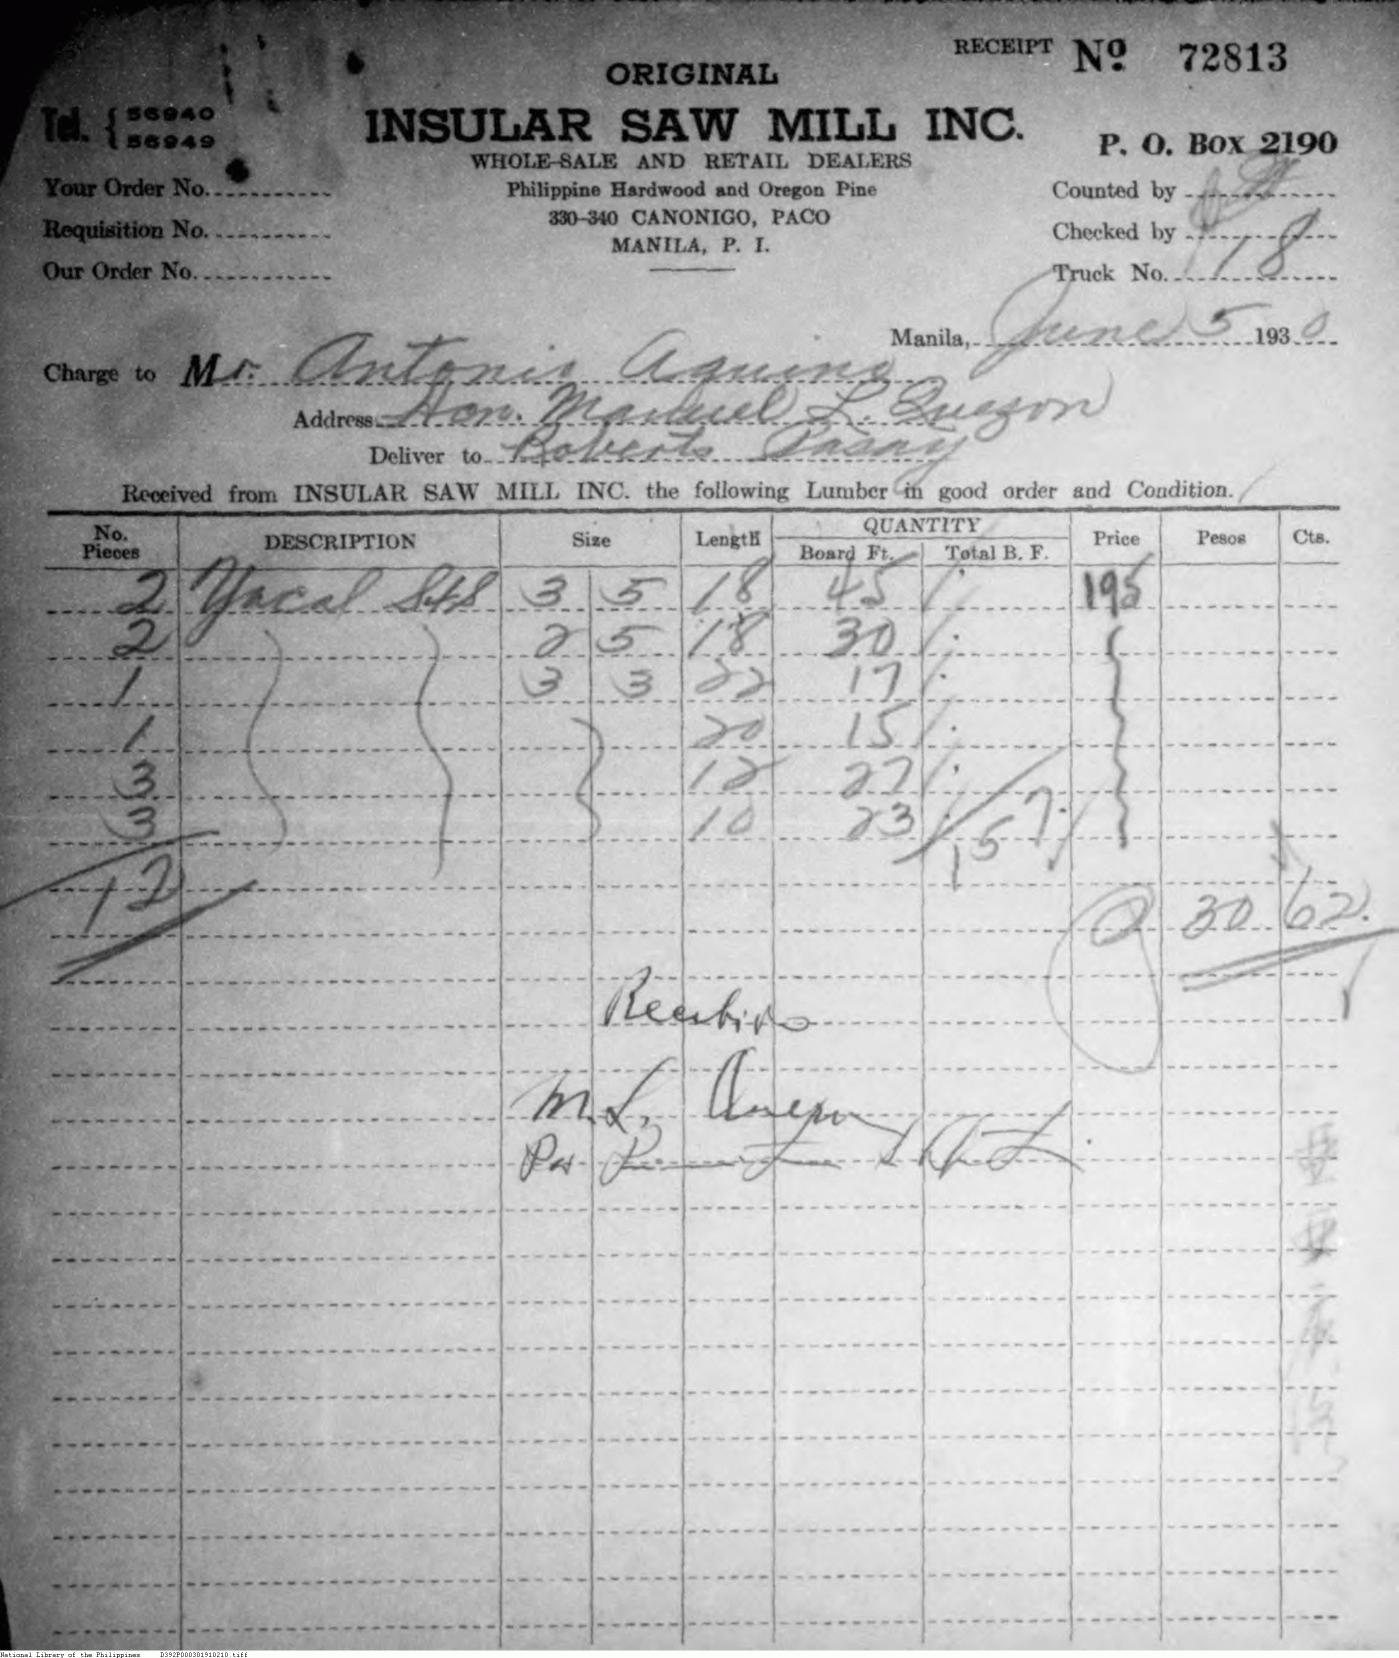 RECEIPT Nº 72813
ORIGINAL
Tel. { 56940
56949
INSULAR SAW MILL INC.
P. O. Box 2190
WHOLE-SALE AND RETAIL DEALERS
Your Order No.
Philippine Hardwood and Oregon Pine
Counted by
330-340 CANONIGO, PACO
Requisition No.
Checked by
MANILA, P. I.
Our Order No.
Truck No. 118
Manila, June 5 1930
Charge to Mr. Antonio Aquino
Address Hon. Manuel L. Quezon
Deliver to Roberts Pasay
Received from INSULAR SAW MILL INC. the following Lumber in good order and Condition.
No. Pieces DESCRIPTION Size Length QUANTITY Price Pesos Cts.
Board Ft. Total B. F.
2 Yacal S4S 3 5 18 45 195
2 2 5 18 30
1 3 3 22 17
1 20 15
3 12 27
3 10 23 157
12
30 62
Recibido
M. L. Quezon
Por
National Library of the Philippines D392P000301910210.tiff